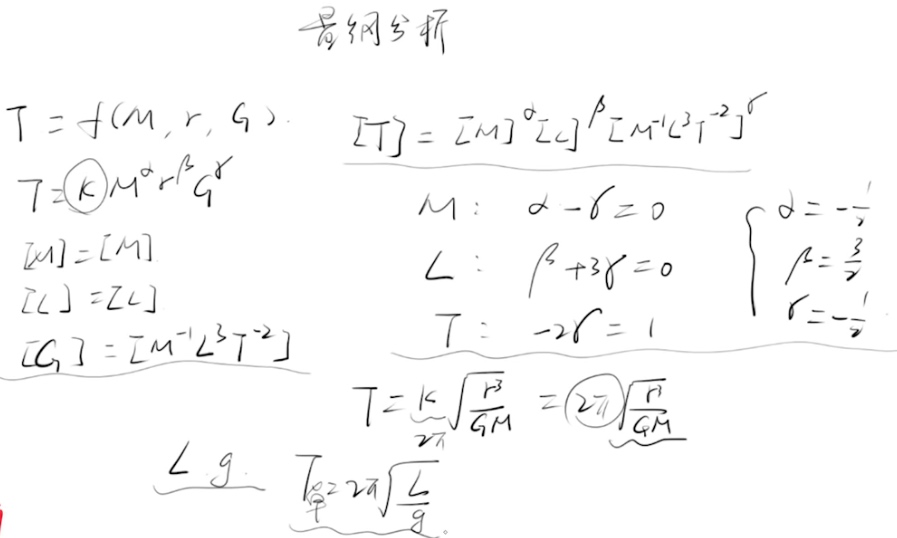 量纲分析
T = f(M, r, G).
T = k M^α r^β G^γ
[M] = [M]
[L] = [L]
[G] = [M⁻¹L³T⁻²]
[T] = [M]^α [L]^β [M⁻¹L³T⁻²]^γ
M: α - γ = 0
L: β + 3γ = 0
T: -2γ = 1
{ α = -1/2
β = 3/2
γ = -1/2
T = k √(r³/GM) = 2π √(r³/GM)
2π
L g. T单 = 2π √(L/g)